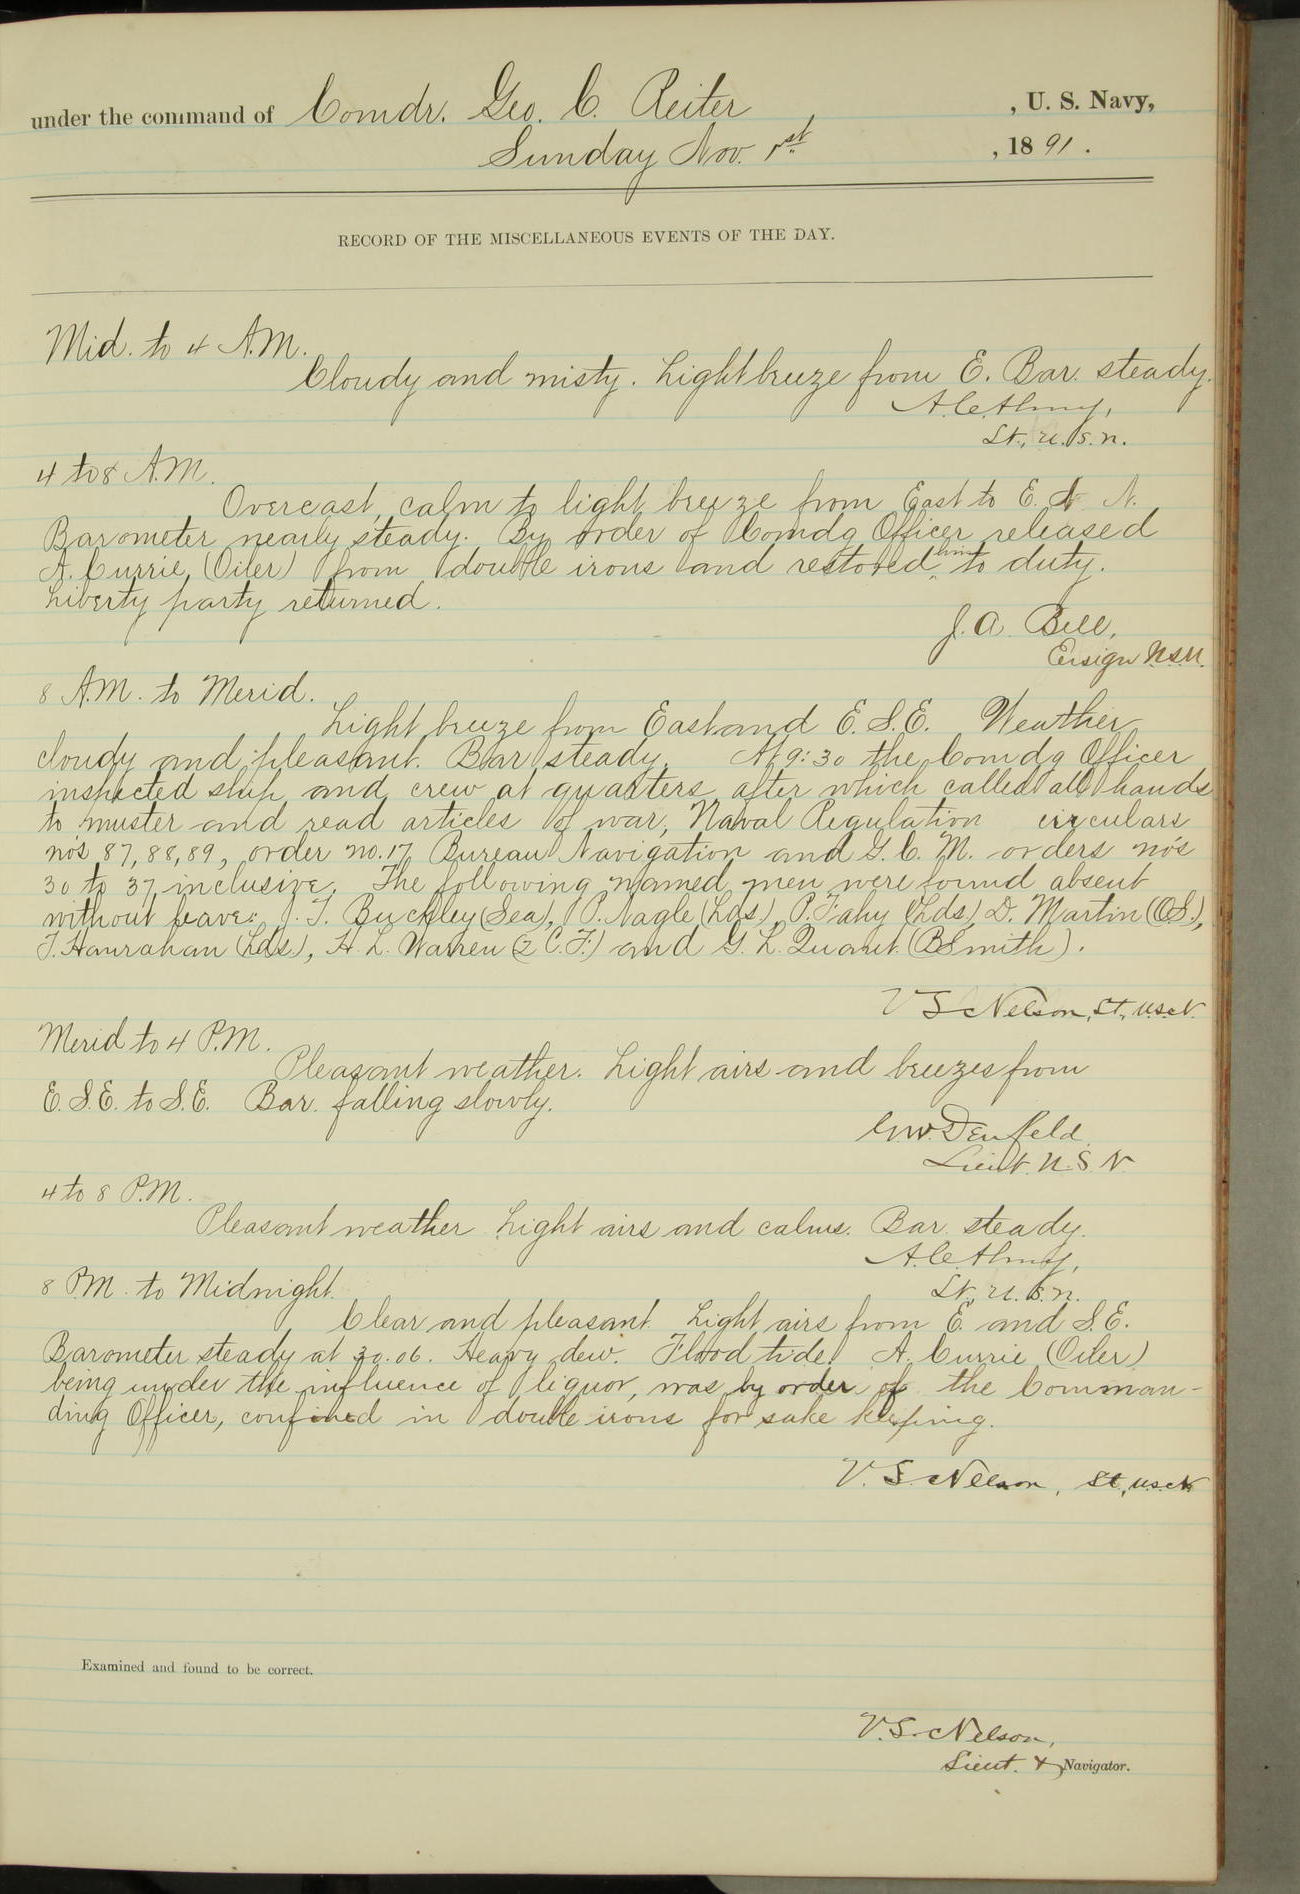 under the command of Comdr. Geo. C. Reiter , U. S. Navy,
Sunday Nov. 1st , 1891.
RECORD OF THE MISCELLANEOUS EVENTS OF THE DAY.
Mid. to 4 A.M.
Cloudy and misty. Light breeze from E. Bar. steady.
A.C. Almy,
Lt., U.S.N.
4 to 8 A.M.
Overcast, calm to light breeze from East to E. N.
Barometer nearly steady. By order of Comdg Officer released
A. Currie (Oiler) from double irons and restored him to duty.
Liberty party returned.
J. A. Bell,
Ensign U.S.N.
8 A.M. to Merid.
Light breeze from East and E.S.E. Weather
cloudy and pleasant. Bar steady. At 9:30 the Comdg Officer
inspected ship and crew at quarters after which called all hands
to muster and read articles of war, Naval Regulation circulars
no's 87, 88, 89, order no. 17 Bureau Navigation and G.C.M. orders no's
30 to 37 inclusive. The following named men were found absent
without leave: J. T. Buckley (Sea), P. Nagle (Lds), P. Fahy (Lds) D. Martin (O.S.),
T. Hanrahan (Lds), H. L. Warren (2 C.F.) and G. L. Quant (BSmith).
V S Nelson, Lt, U.S.N.
Merid to 4 P.M.
Pleasant weather. Light airs and breezes from
E.S.E. to S.E. Bar. falling slowly.
G.W. Denfeld,
Lieut. U.S.N.
4 to 8 P.M.
Pleasant weather Light airs and calms. Bar steady.
A.C. Almy,
Lt., U.S.N.
8 P.M. to Midnight.
Clear and pleasant Light airs from E. and S.E.
Barometer steady at 30.06. Heavy dew. Flood tide. A. Currie (Oiler)
being under the influence of liquor, was by order of the Comman-
ding Officer, confined in double irons for sake keeping.
V. S. Nelson, Lt, U.S.N.
Examined and found to be correct.
V. S. Nelson,
Lieut. & Navigator.